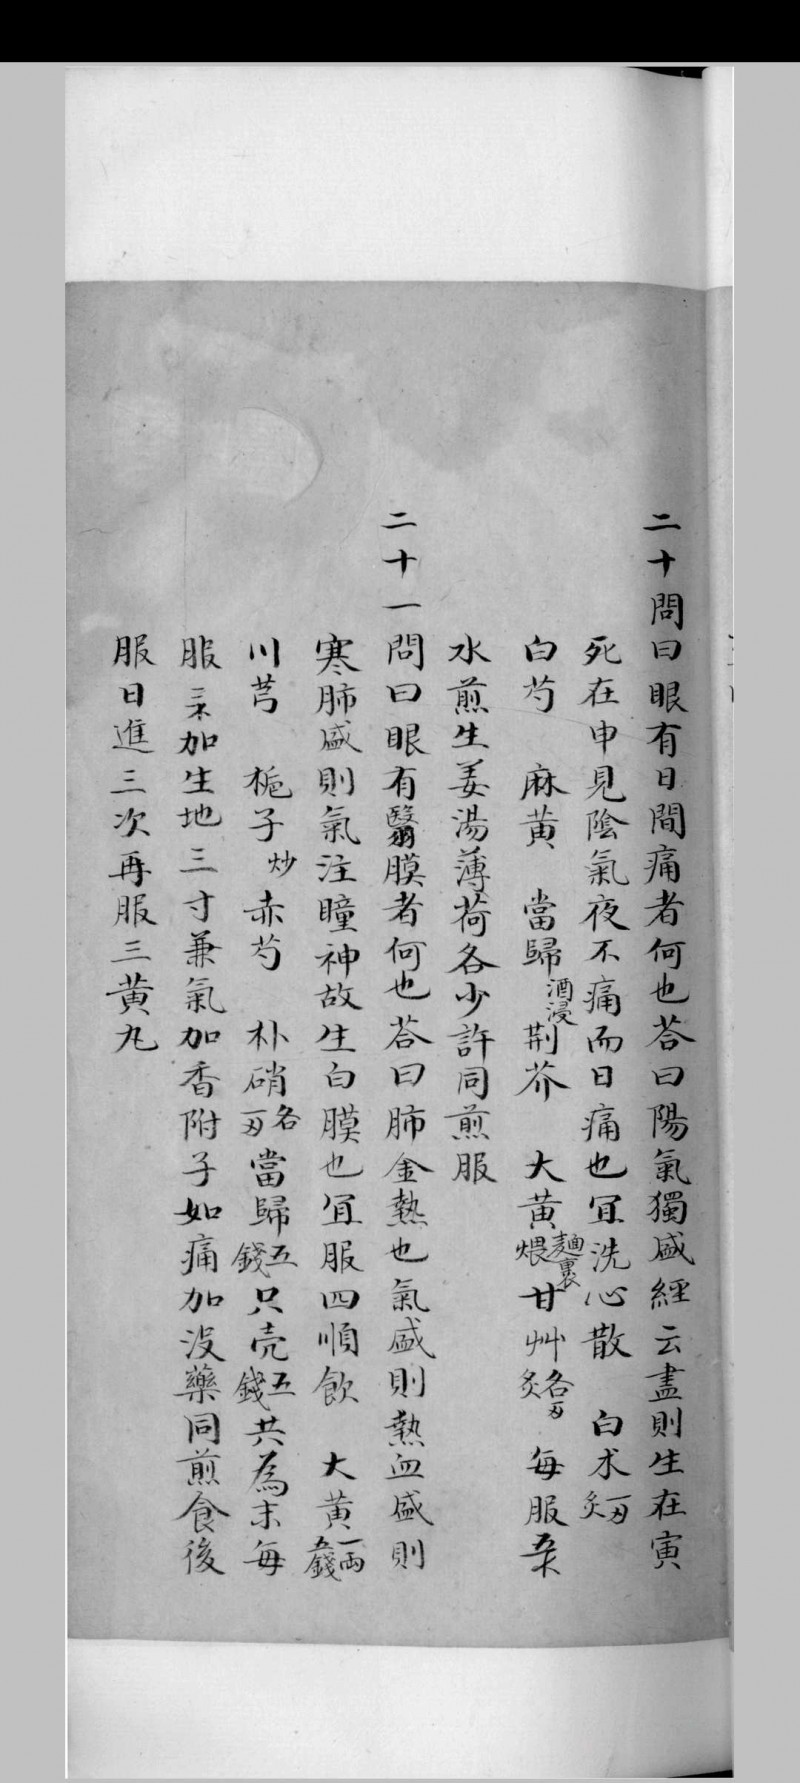 二十問曰眼有日間痛者何也荅曰陽氣獨盛經云盡則生在寅
死在申見陰氣夜不痛而日痛也宜洗心散 白术一刄炙
白芍 麻黄 當歸酒浸荆芥 大黄麵裏煨甘艸各刄炙 每服
水煎生姜湯薄荷各少許同煎服
二十一問曰眼有翳膜者何也荅曰肺金熱也氣盛則熱血盛則
寒肺盛則氣注瞳神故生白膜也宜服四順飲 大黄一兩五錢
川芎 梔子炒 赤芍 朴硝各一刄當歸五錢只壳五錢共為末每
服三加生地三寸兼氣加香附子如痛加没藥同煎食後
服日進三次再服三黄丸